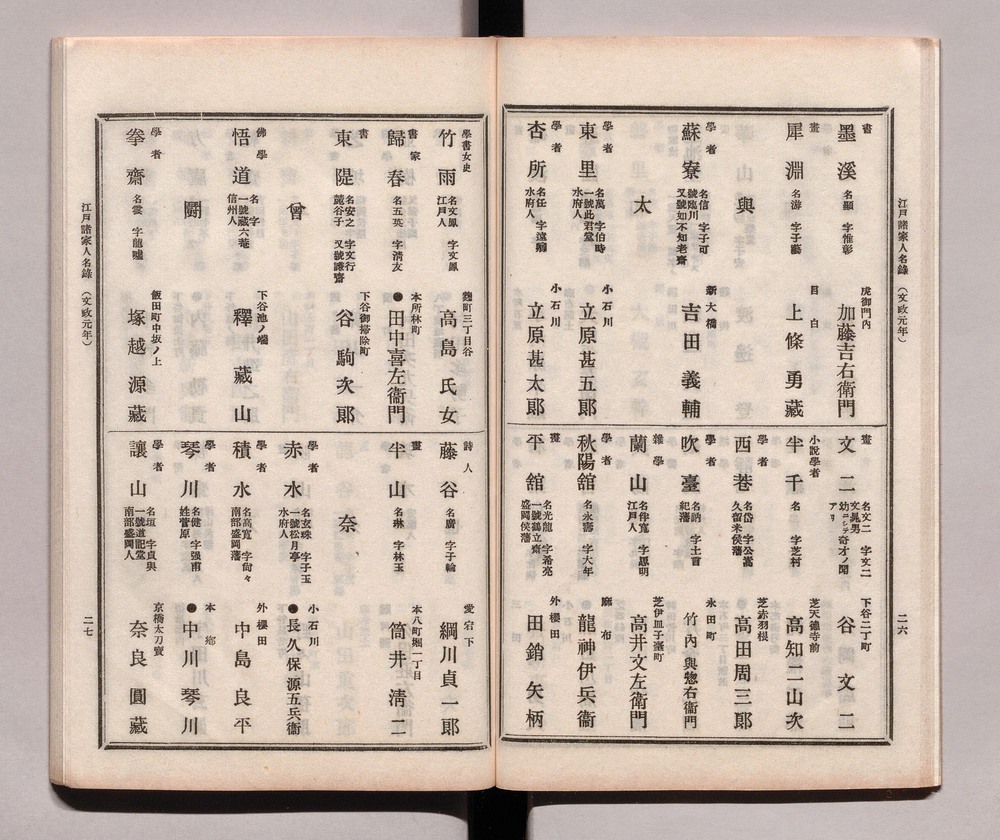 江戸諸家人名錄 (文政元年)
二六
書
墨溪 名顯 字惟彰
虎御門內
加藤吉右衛門
畫
犀淵 名游 字子藝
目白
上條勇藏
與
學者
蘇寮 名信 字子可
一號臨川
又號如不知老齋
新大橋
吉田義輔
太
學者
東里 名萬 字伯時
一號此君堂
水府人
小石川
立原甚五郎
學者
杏所 名任 字遠
水府人
小石川
立原甚太郎
畫
文二 名文二 字文二
文晁男
幼ニシテ奇才ノ聞
アリ
下谷二丁町
谷文二
小說學者
半千 名 字芝村
芝天德寺前
高知二山次
學者
西巷 名岱 字公嵩
久留米侯藩
芝赤羽根
高田周三郎
學者
吹臺 名訥 字士首
紀藩
永田町
竹內與惣右衛門
雜學
蘭山 名伴寬 字思明
江戶人
芝伊皿子臺町
高井文左衛門
學者
秋陽舘 名永壽 字大年
麻布
龍神伊兵衞
畫
平舘 名光龍 字希亮
一號鶴立齋
盛岡侯藩
外櫻田
田鎖矢柄
江戸諸家人名錄 (文政元年)
二七
學書女史
竹雨 名文鳳 字文鳳
江戶人
麹町三丁目谷
高島氏女
書家
歸春 名五英 字淸友
本所林町
●田中喜左衞門
書
東隄 名安之 字文行
蔬谷子 又號謙齋
下谷御掃除町
谷駒次郎
曾
佛學
悟道 名 字
一號藏六菴
信州人
下谷池ノ端
釋藏山
鬪
學者
拳齋 名雲 字龍嘘
飯田町中坂ノ上
塚越源藏
詩人
藤谷 名廣 字子綸
愛宕下
綱川貞一郎
畫
半山 名琳 字林玉
本八町堀一丁目
筒井淸二
奈
學者
赤水 名玄珠 字子玉
一號松月亭
水府人
小石川
●長久保源五兵衞
學者
積水 名高寬 字尙々
南部盛岡藩
外櫻田
中島良平
學者
琴川 名健 字强甫
姓菅原
本鄕
●中川琴川
學者
讓山 名垣 字貞與
一號道記堂
南部盛岡人
京橋太刀賣
奈良圓藏